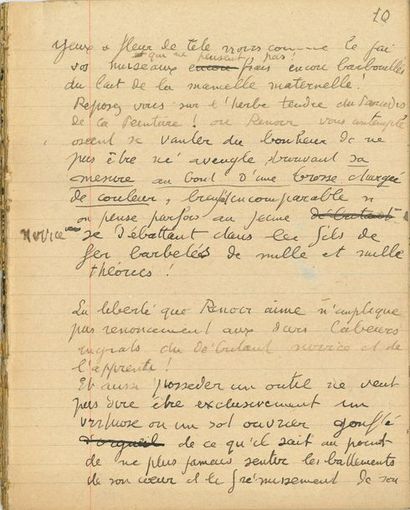 10
yeux à fleur de tête noirs comme le jai
qui ne pensent pas !
vos museaux encore frais encore barbouillés
du lait de la mamelle maternelle !
Reposez vous sur l'herbe tendre du Paradis
de la Peinture ! où Renoir vous contemple
osent se vanter du bonheur de ne
pas être né aveugle trouvant sa
mesure au bout d'une brosse chargée
de couleur, bref incomparable si
on pense parfois au jeune debutant
novice se débattant dans les fils de
fer barbelés de mille et mille
théories !
La liberté que Renoir aime n'implique
pas renoncement aux durs labeurs
ingrats du débutant novice et de
l'apprenti !
Et aussi posséder un outil ne veut
pas dire être exclusivement un
virtuose ou un sot ouvrier gonflé
d'orgueil de ce qu'il sait au point
de ne plus jamais sentir les battements
de son cœur et le frémissement de son